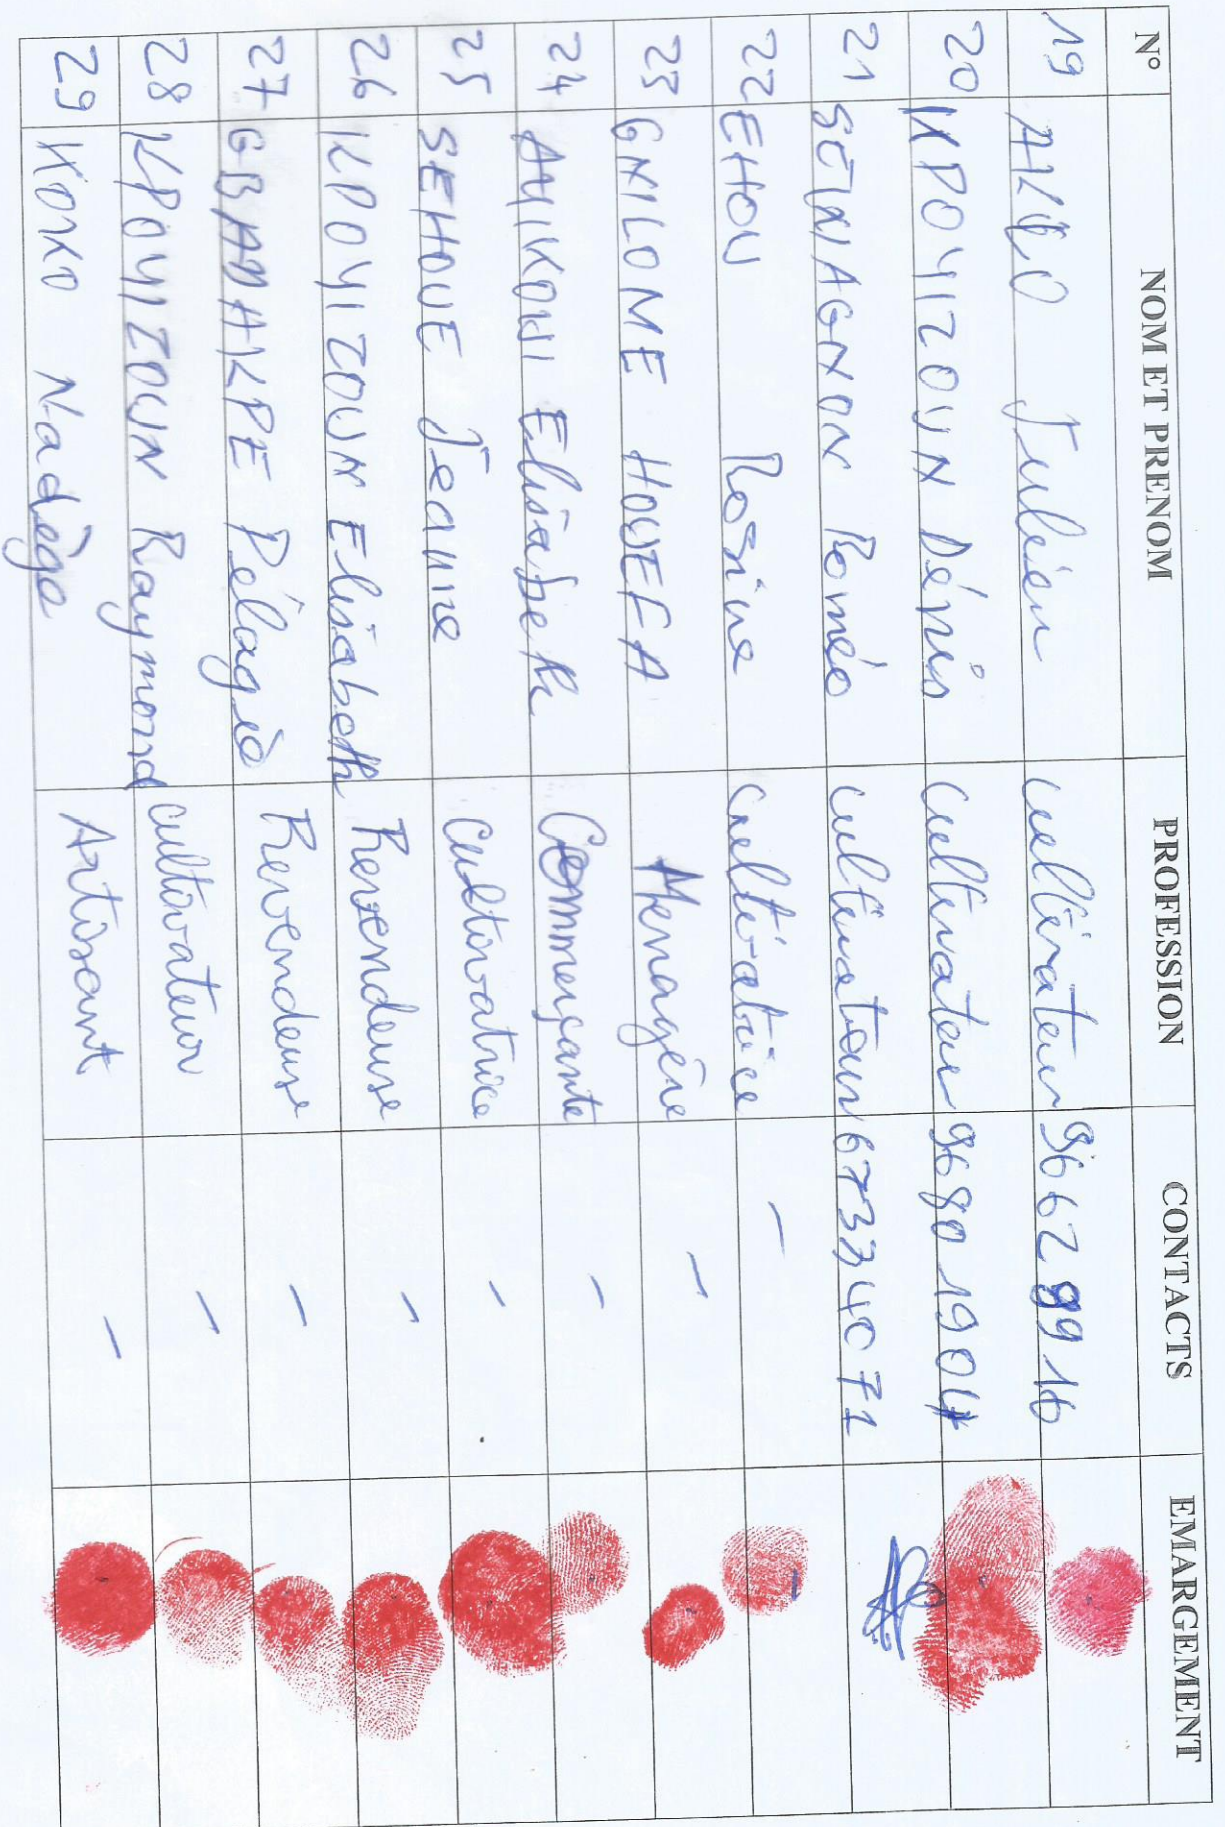 N° NOM ET PRENOM PROFESSION CONTACTS EMARGEMENT
19 Julien cultivateur
20 KPOYIZOUN Dénis Cultivateur 96801904
21 SEWAGNON Roméo cultivateur 67334071
22 EHOU Rosine cultivatrice -
23 GNILOME HOUEFA Menagère -
24 AYIKOWI Elisabeth Commerçante -
25 SEHOUE Jeanne Cultivatrice -
26 KPOYIZOUN Elisabeth Revendeuse -
27 GBADAKPE Pélagie Revendeuse -
28 KPOYIZOUN Raymond cultivateur -
29 KOKO Nadège Artisant -